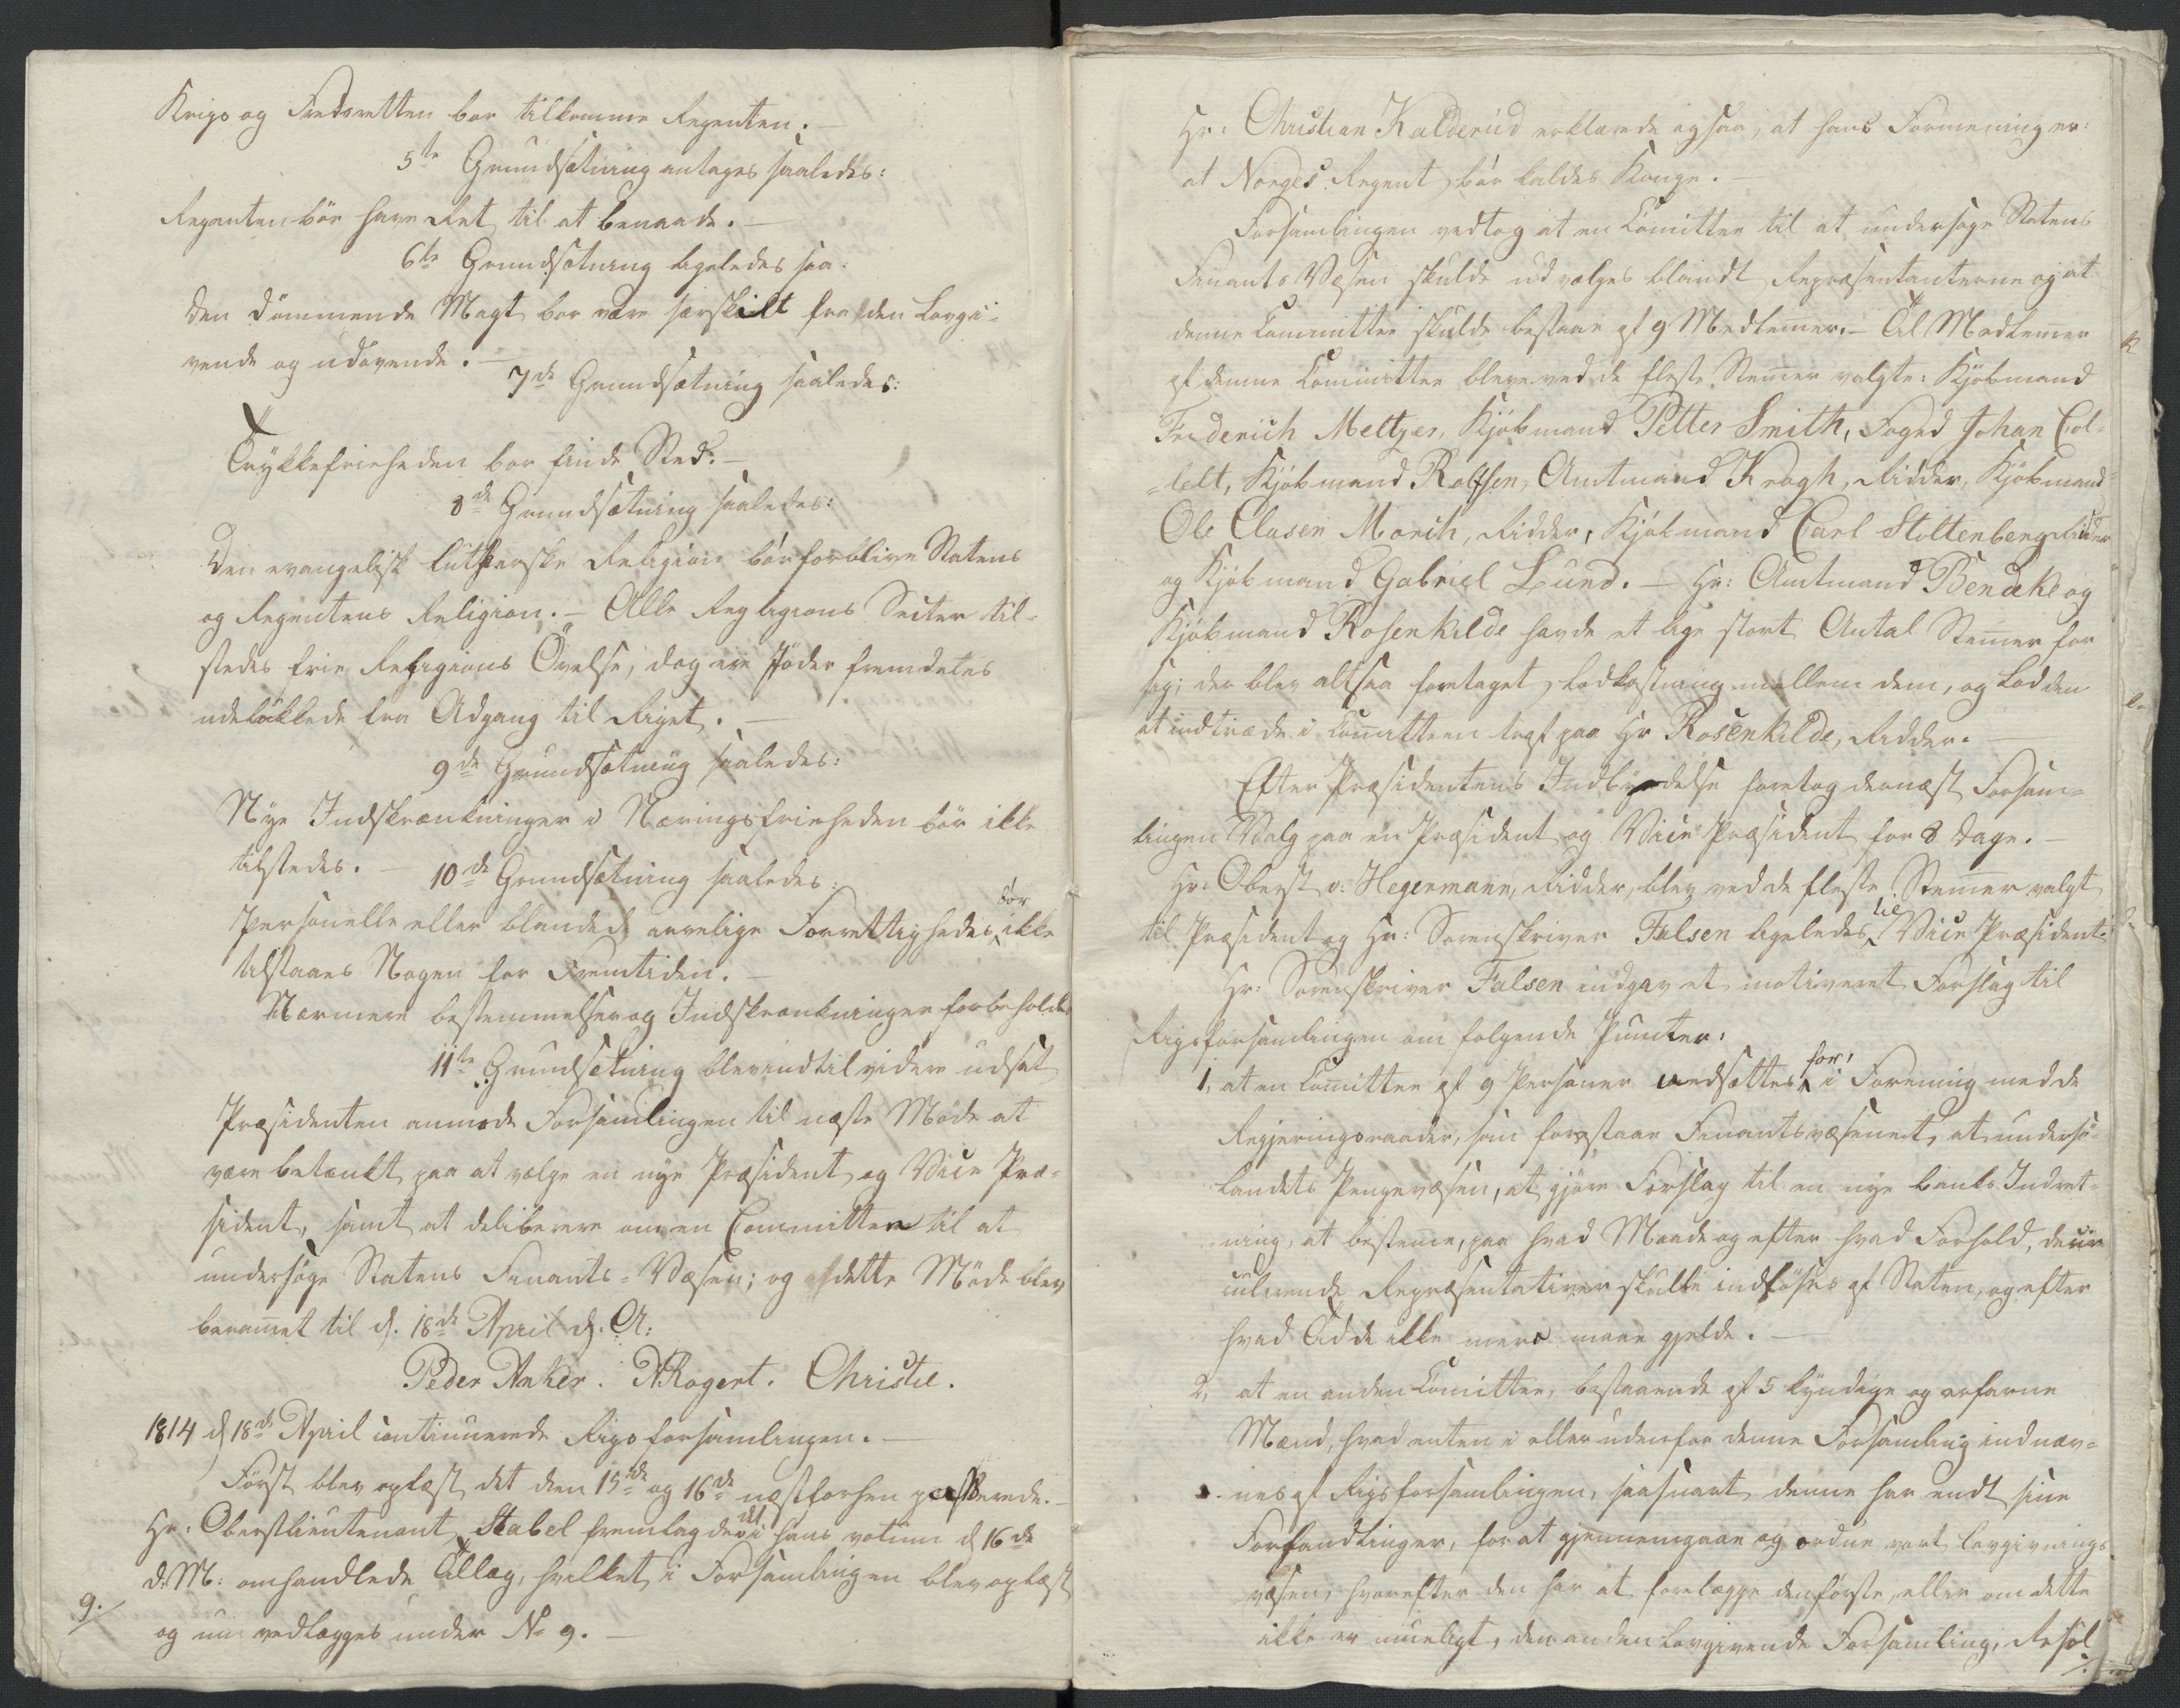 Krigs og Fredsretten bør tilkomme Regenten. —
5te Grundsætning antages saaledes:
Regenten bör have Ret til at benaade. —
6te Grundsætning ligeledes saa:
Den dömmende Magt bør være særskilt fra den Lovgi-
vende og udövende. —
7de Grundsætning saaledes:
Trykkefriheden bør finde Sted. —
8de Grundsætning saaledes:
Den evangelisk lutherske Religion bör forblive Statens
og Regentens Religion. — Alle Religions Secter til-
stedes frie Religions Övelse; dog ere Jöder fremdeles
udelukkede fra Adgang til Riget. —
9de Grundsætning saaledes:
Nye Indskrænkninger i Næringsfriheden bör ikke
tilstedes. —
10de Grundsætning saaledes:
Personelle eller blandede arvelige Forrettigheder bör ikke
tilstaaes Nogen for Fremtiden. —
Nærmere bestemmelser og Indskrænkninger forbeholdes
11te Grundsætning blev indtil videre udsat
Præsidenten anmode Forsamlingen til næste Möde at
være betænkt paa at vælge en nye Præsident og Vice Præ-
sident, samt at deliberere om en Committee til at
undersöge Statens Finants-Væsen; og dette Möde blev
beramet til d. 18de April d. A:
Peder Anker. WRogert. Christie.
1814 d 18de April continuerede Rigsforsamlingen. —
Først blev oplæst det den 15de og 16de næstforhen passerede. —
Hr: Oberstlieutenant Stabel fremlagde det i hans votum d 16de
d. M: omhandlede Tillæg, hvilket i Forsamlingen blev oplæst
9./
og nu vedlægges under No 9. —
Hr: Christian Kalderud erklærede ogsaa, at hans Formening er:
at Norges Regent bör kaldes Konge. —
Forsamlingen vedtog at en Comittee til at undersöge Statens
Finants Væsen skulde udvælges blandt Repræsentanterne og at
denne Committee skulde bestaae af 9 Medlemer. — Til Medlemer
af denne Committee bleve ved de fleste Stemer valgte: Kjöbmand
Frederich Meltzer, Kjöbmand Petter Smith, Foged Johan Col-
=lett, Kjöbmand Rolfsen, Amtmand Krogh, Ridder, Kjöbmand
Ole Clasen Morch, Ridder, Kjöbmand Carl Stoltenberg Ridder
og Kjöbmand Gabriel Lund. — Hr: Amtmand Bendeke og
Kjöbmand Rosenkilde havde et lige stort Antal Stemer for
sig; der blev altsaa foretaget Lodkastning mellem dem, og Lodden
at indtræde i Comitteen traf paa Hr Rosenkilde, Ridder. —
Efter Præsidentens Indbydelse foretog dernæst Forsam-
lingen Valg paa en Præsident og Vice Præsident for 8 Dage. —
Hr: Oberst v: Hegermann, Ridder, blev ved de fleste Stemer valgt
til Præsident og Hr: Sorenskriver Falsen ligeledes til Vice Præsident.
Hr: Sorenskriver Falsen indgav et motiveret Forslag til
Rigsforsamlingen om folgende Puncter:
1, at en Comittee af 9 Personer nedsættes, for i Forening med de
Regjeringsraader, som forestaae Finantsvæsenet, at undersö-
Landets Pengevæsen, at gjöre Forslag til en nye Banks Indret-
ning, at besteme, paa hvad Maade og efter hvad Forhold, de cir
culerende Repræsentativer skulle indlöses af Staten, og efter
hvad Tid de ikke mere maae gjelde. —
2, at en anden Comittee, bestaaende af 5 kyndige og erfarne
Mænd, hvad enten i eller udenfor denne Forsamling indnæv-
nes af Rigsforsamlingen, saasnart denne har endt sine
Forhandlinger, for at gjennemgaae og ordne vort Lovgivnings
væsen, hvorefter den har at forelægge den förste, eller om dette
ikke er mueligt, den anden Lovgivende Forsamling, Resul